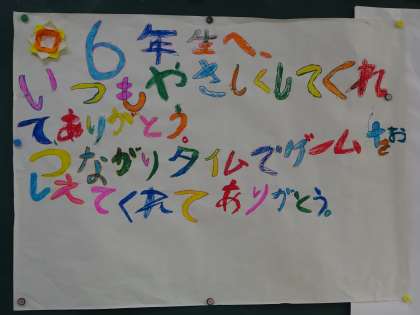 6年生へ、
いつもやさしくしてくれ。
て、ありがとう。
つながりタイムでゲームをお
しえてくれてありがとう。